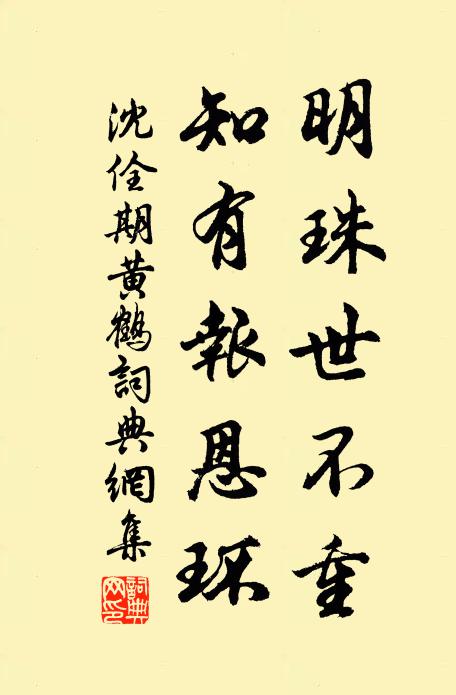 明珠世不重
知有報恩环
沈佺期黄鶴詞典網集
詞典網印